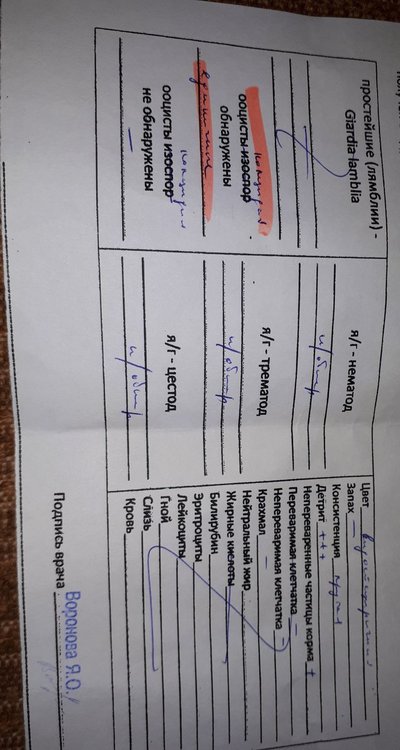 простейшие (лямблии) -
Giardia lamblia
кокцидия
ооцисты изоспор
обнаружены
кокцидия
ооцисты изоспор
не обнаружены
—
я/г - нематод
н/обнар
я/г - трематод
н/обнар
я/г - цестод
н/обнар
Цвет
Запах —
Консистенция
Детрит +++
Непереваренные частицы корма +
Переваримая клетчатка —
Непереваримая клетчатка
Крахмал —
Нейтральный жир
Жирные кислоты
Билирубин
Эритроциты
Лейкоциты
Гной
Слизь
Кровь
Подпись врача Воронова Я.О.